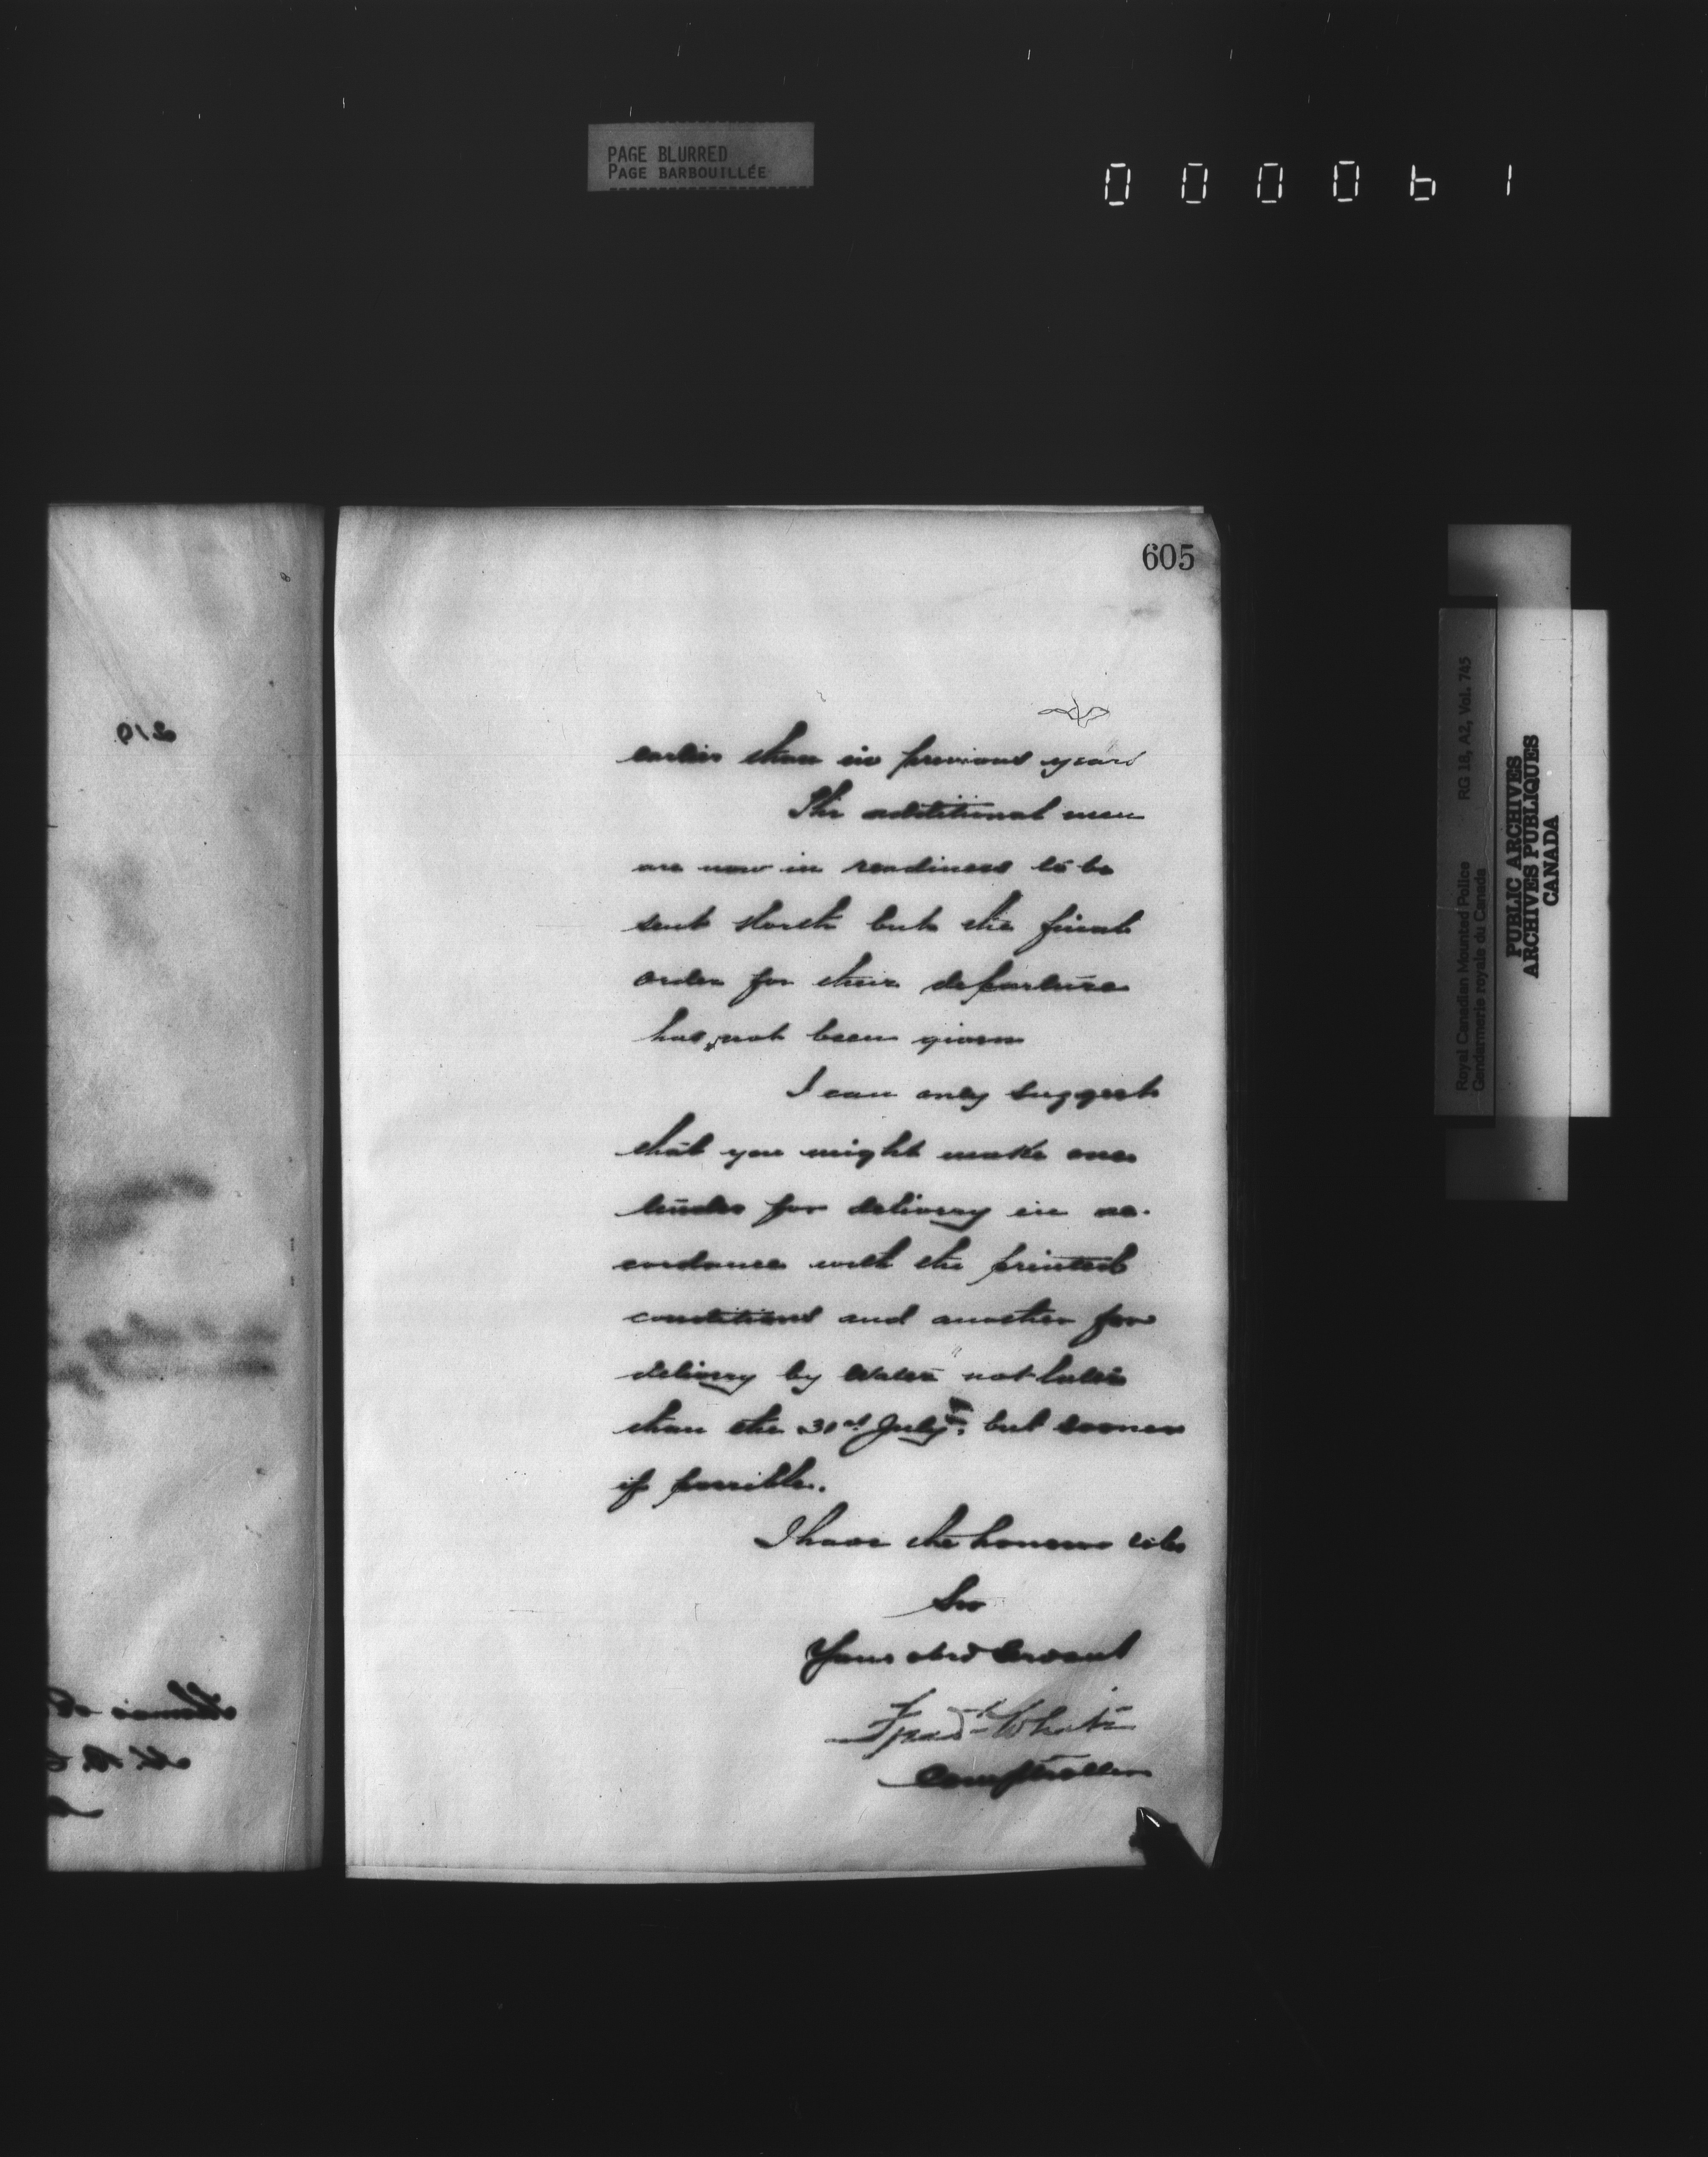 PAGE BLURRED
PAGE BARBOUILLÉE
0 0 0 0 6 1
605
earlier than in previous years
The additional men
are now in readiness to be
sent North but the final
order for their departure
has not been given
I can only suggest
that you might make one
tender for delivery in ac-
cordance with the printed
conditions and another for
delivery by water not later
than the 31st July, but sooner
if possible.
I have the honour to be
Sir
Your obed Servant
Fred White
Comptroller
Royal Canadian Mounted Police RG 18, A2, Vol. 745
Gendarmerie royale du Canada
PUBLIC ARCHIVES
ARCHIVES PUBLIQUES
CANADA